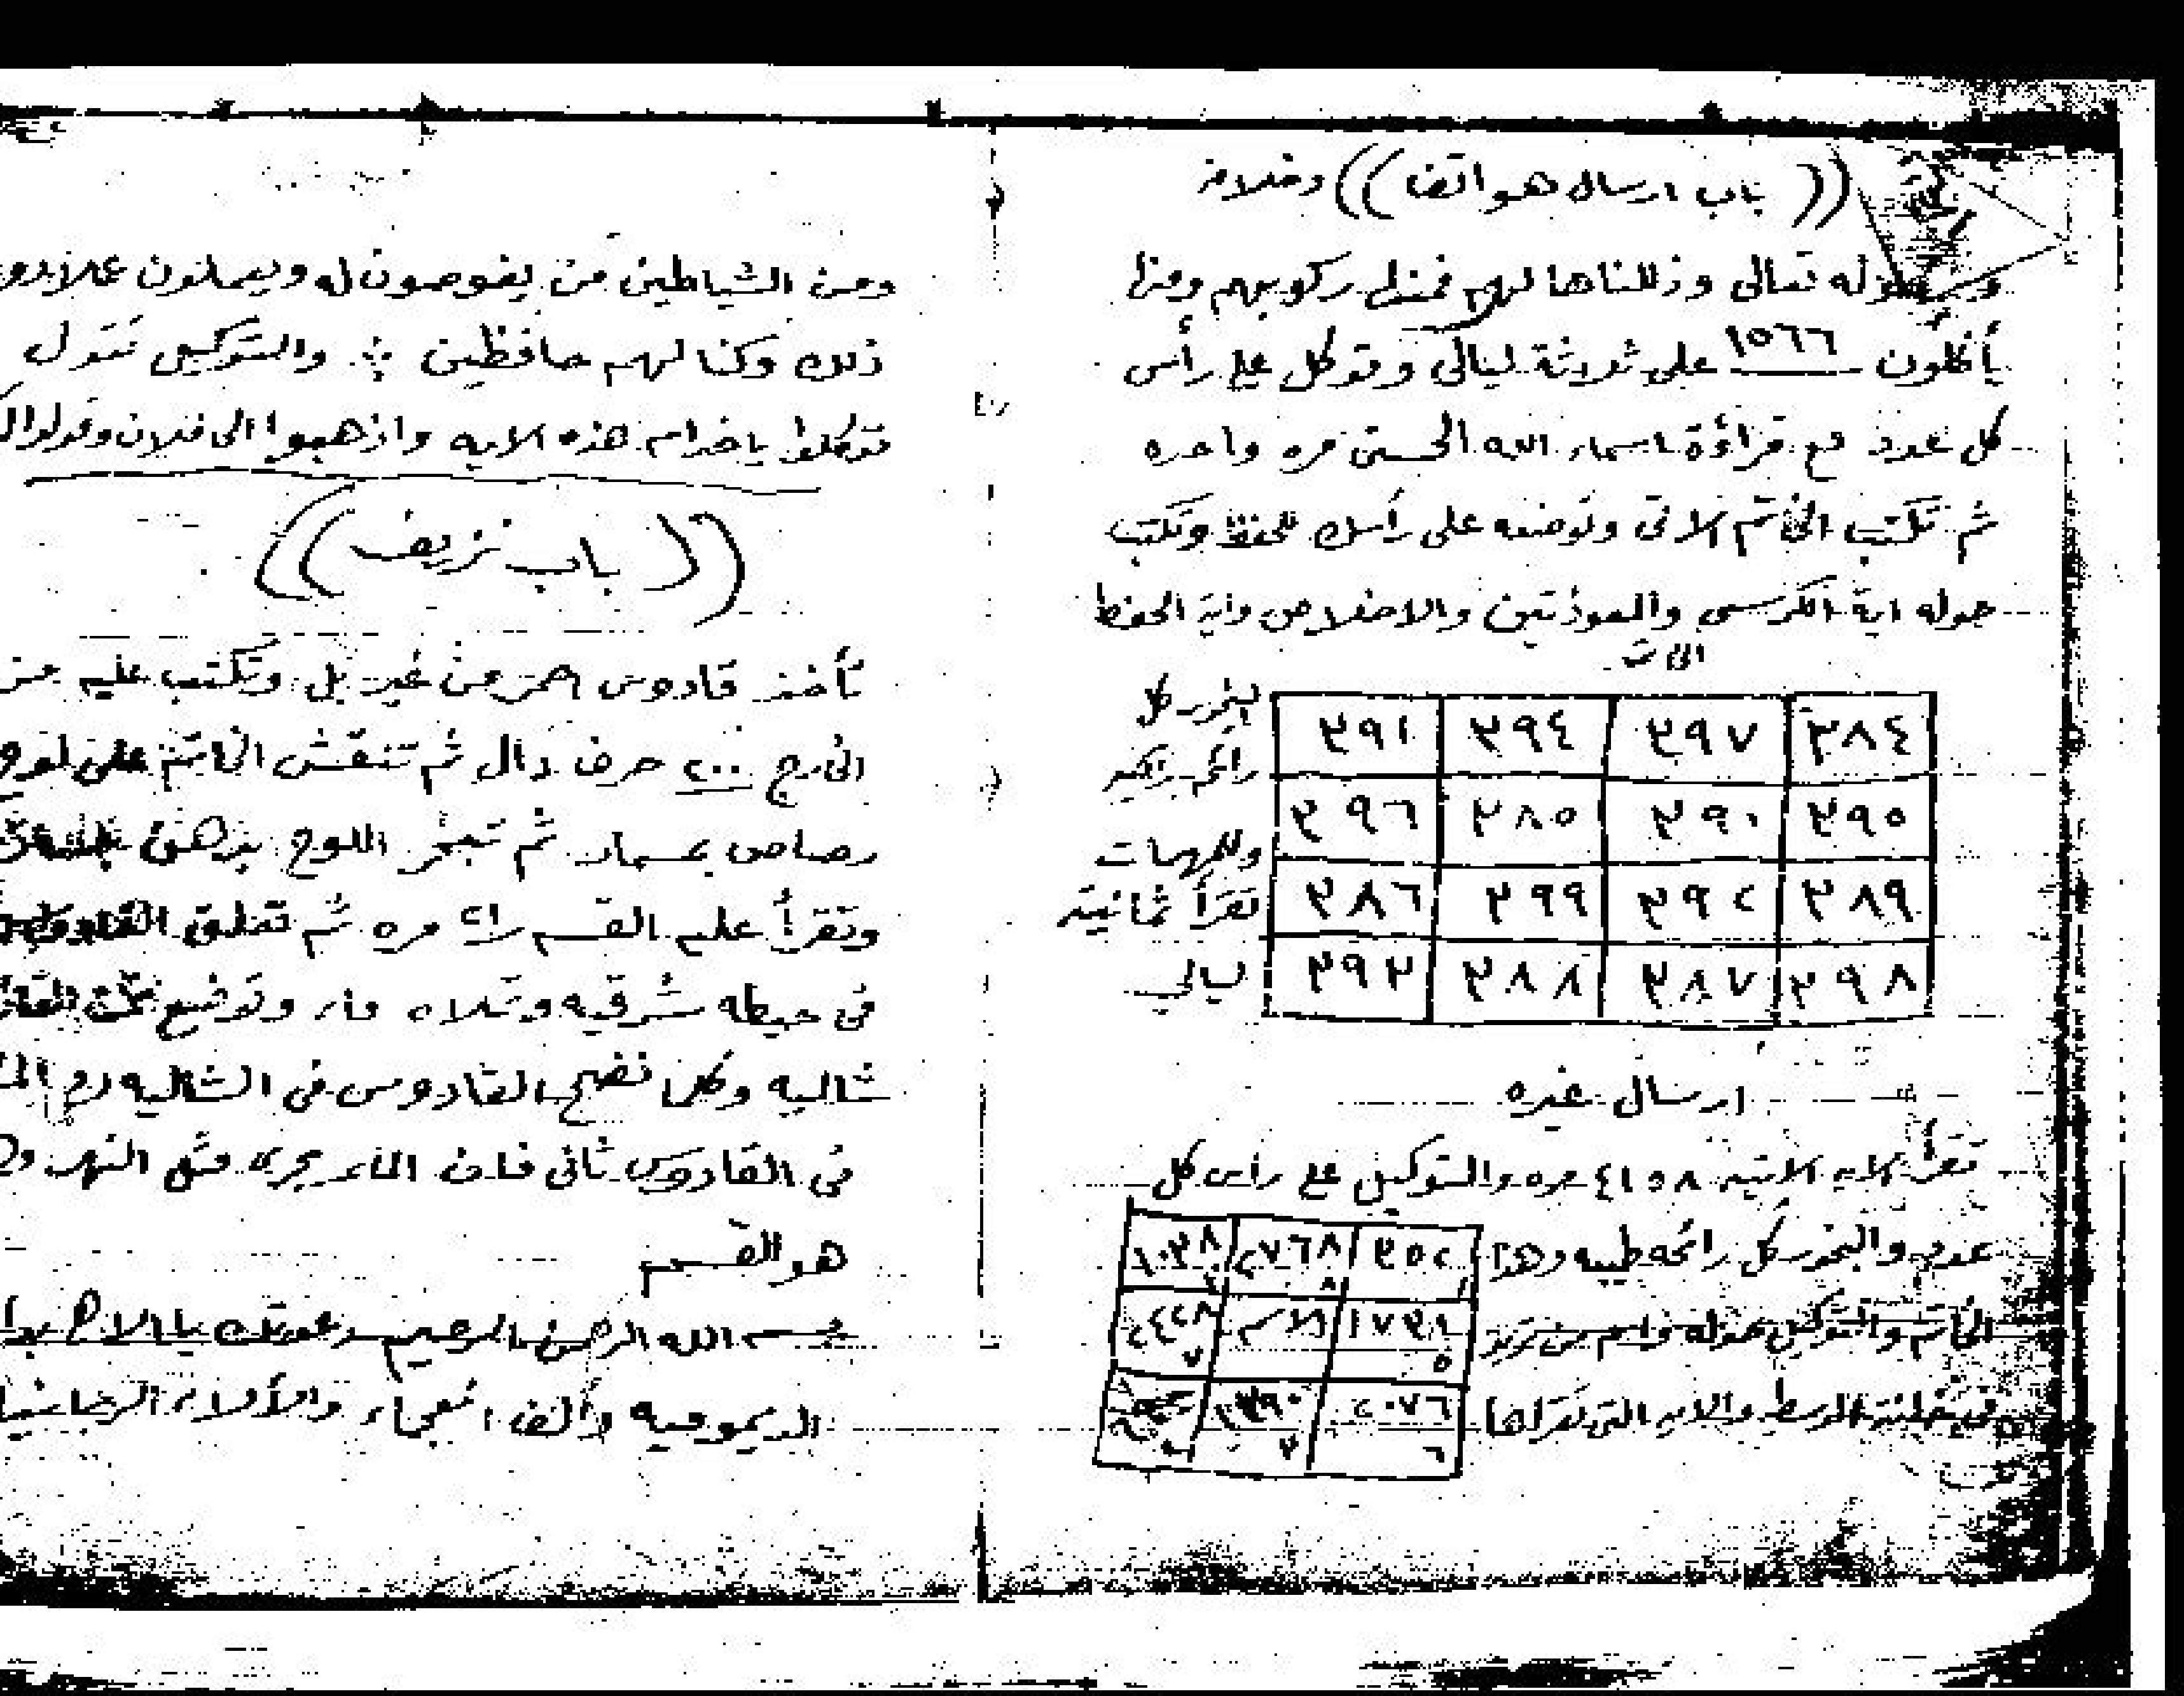 (( باب ارسال هواتف )) وخلافه
قوله تعالى وذللناها لهم فمنها ركوبهم ومنها
يأكلون ١٥٦٦ على ثلاثة ليالى وتوكل على رأس
كل عدد مع قراءة اسماء الله الحسنى مره واحده
ثم تكتب الخاتم الاتى وتوضعه على رأسك للحفظ وتكتب
حوله اية الكرسى والمعوذتين والاخلاص واية الحفظ
الخاتم
٣٨٤ ٣٩٧ ٣٩٤ ٣٩١
٣٩٥ ٣٩٠ ٣٨٥ ٣٩٦
٣٨٩ ٣٩٢ ٣٩٩ ٣٨٦
٣٩٨ ٣٨٧ ٣٨٨ ٣٩٣
البخور كل
وللمهمات
تقرأ ثمانية
ليالي
ارسال غيره
تقرأ الايه الاتيه ٤١٥٨ مره والتوكيل على رأس كل
عدد والبخور كل رائحه طيبه وهذا
الخاتم والتوكيل حوله واسم من تريد
فى خلية الوسط والايه التى تقرأها
٣٥٢ ٢٧٦٨ ١٠٣٨
١ ٨
١٧٣١ الاسم ٢٤٢٨
٥ ٧
٢٠٧٦
٦
ومن الشياطين من يغوصون له ويعملون عملا دون
ذلك وكنا لهم حافظين والتوكيل تقول
توكلوا ياخدام هذه الايه واذهبوا الى فلان وقولوا
(( باب نزيف ))
تأخذ قادوس احمر من غير بل وتكتب عليه من
الخارج ٢٠٠ حرف دال ثم تنقش الخاتم على لوح
رصاص بمسمار ثم تبخر اللوح
وتقرأ عليه القسم ٢١ مره ثم تعلق القادوس
فى حيطه شرقيه وتملاه ماء وتوضع تحت القادوس
شاليه وكلما نضح القادوس فى الشاليه
فى القادوس ثانى فان الماء يجرى مثل النهر
هو القسم
بسم الله الرحمن الرحيم دعوتك يا
الديموميه وألف انعجاء والألاء